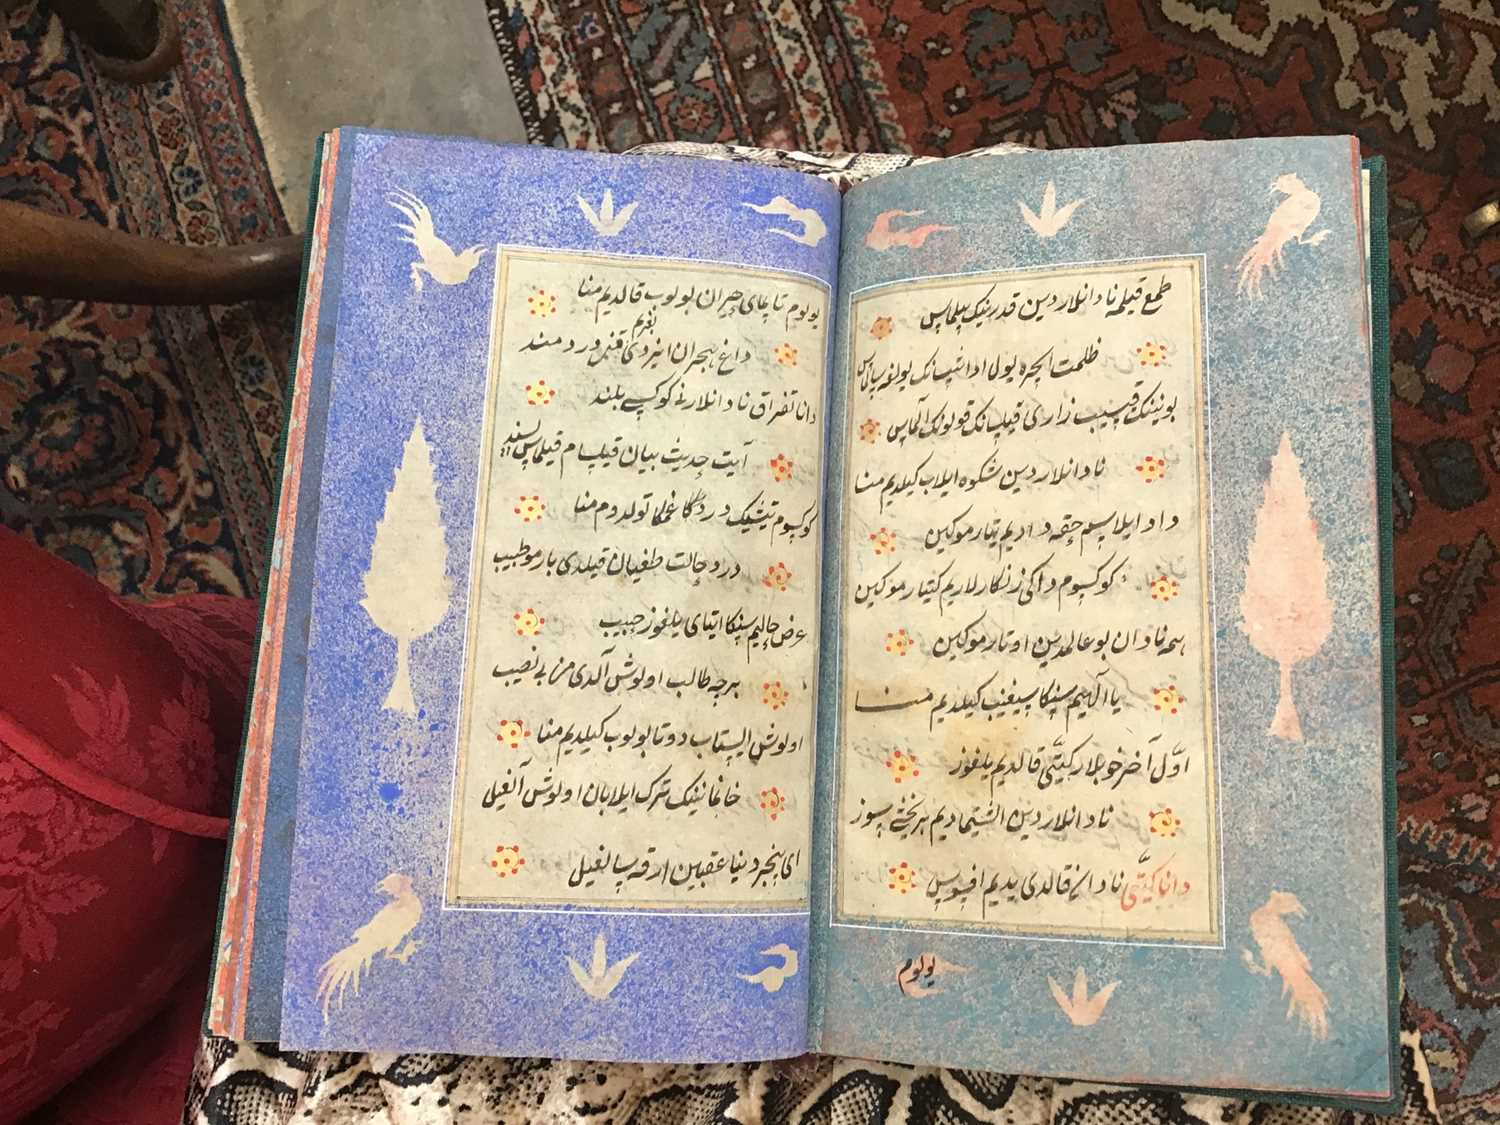 طمع قیلمه نادانلاردین قدرینک بیلماس
ظلمت ایچره یول اداشیب تک یولغه سالماس
بویینک قیسیب زاری قیلیب تک قولونک آلماس
نادانلاردین شکوه ایلاب کیلدیم منا
داد ایلاسم حقه دادیم یتارموکین
کوکسوم داکی زنکارلاریم کیتارموکین
همه نادان بو عالمدین اوتارموکین
یا الهیم سنکا سیغنیب کیلدیم منا
اول آخر خوبلار کیتی قالدیم یلغوز
نادانلاردین ایشیتمادیم هرکز سوز
دانا کیتی نادانی قالدی یدیم افسوس
یولوم
یولوم تاپمای حیران بولوب قالدیم منا
داغ هجران ایزدی قنی دردمند
دانا تفراق نادانلارنی کوکسی بلند
آیت حدیث بیان قیلسام قیلماس پسند
کوکسوم تیشیک دردکا غمکا تولدوم منا
درد حالت طغیان قیلدی بارمو طبیب
عرض حالیم سنکا ایتای یلغوز حبیب
برچه طالب اولوش آلدی من بی نصیب
اولوش ایستاب دوتا بولوب کیلدیم منا
خانماننک ترک ایلابان اولوش آلغیل
ای دنیا عقبین ارقه سالغیل